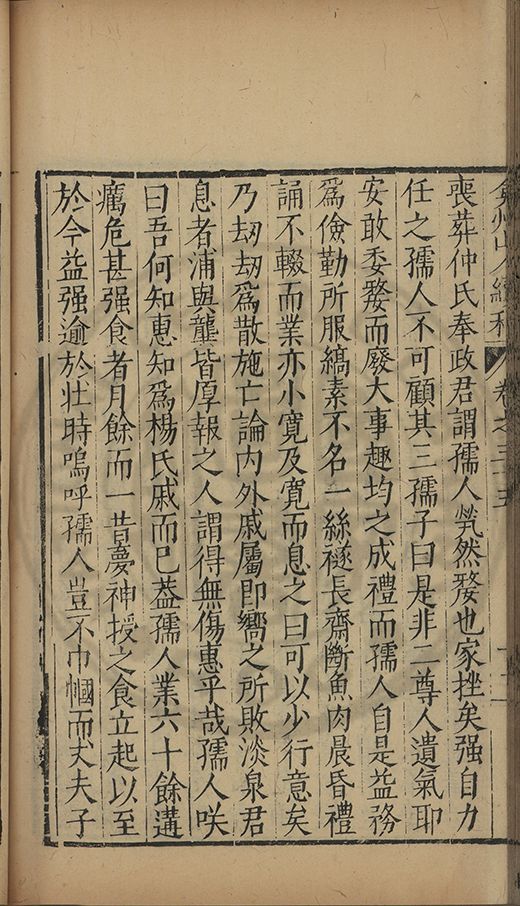 弇州山人續稿 卷之三十五
喪葬仲氏奉政君謂孺人煢然嫠也家挫矣强自力
任之孺人不可顧其三孺子曰是非二尊人遺氣耶
安敢委嫠而廢大事趣均之成禮而孺人自是益務
爲儉勤所服縞素不名一絲襚長齋斷魚肉晨昏禮
誦不輟而業亦小寛及寛而息之曰可以少行意矣
乃刧刧爲散施亡論内外戚屬即嚮之所敗淡泉君
息者浦與龔皆厚報之人謂得無傷惠乎哉孺人咲
曰吾何知惠知爲楊氏戚而已葢孺人業六十餘遘
癘危甚强食者月餘而一昔夢神授之食立起以至
於今益强逾於壯時嗚呼孺人豈不巾幗而丈夫子